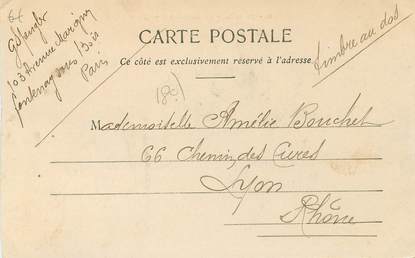 6f
103 Avenue Marigny
fontenay sous Bois
Paris
CARTE POSTALE
Ce côté est exclusivement réservé à l'adresse
timbre au dos
Mademoiselle Amélie Bouchet
66 Chemin des Cures
Lyon
Rhône